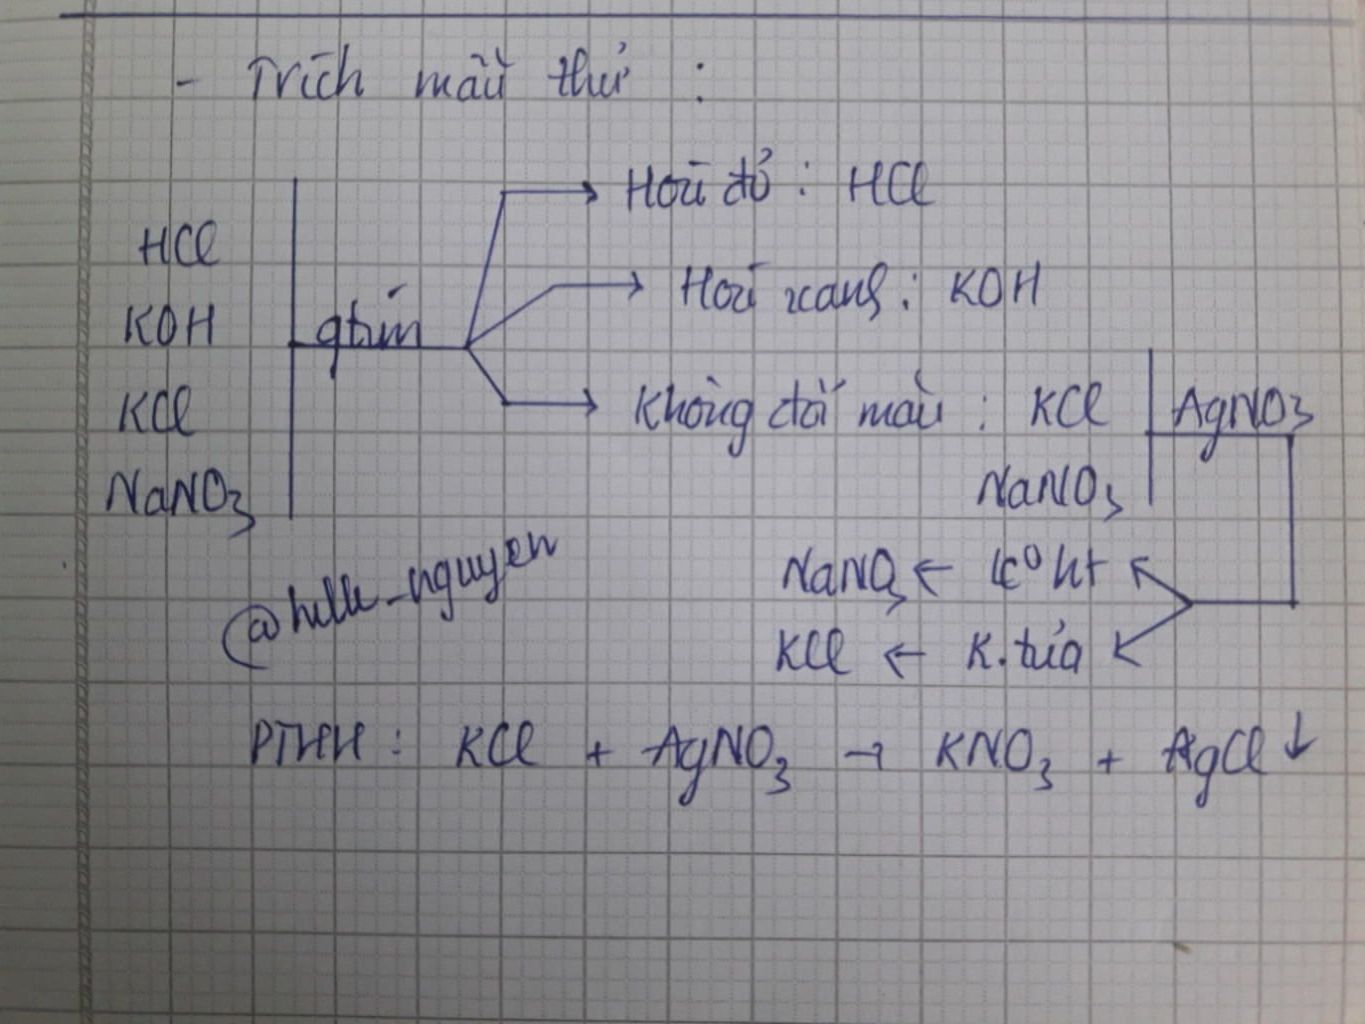 - Trích mẫu thử :
HCl
KOH
KCl
NaNO3
qtím
Hoá đỏ : HCl
Hoá xanh : KOH
Không đổi màu : KCl
NaNO3
AgNO3
NaNO3 ← k° ht
KCl ← K.tủa
PTHH : KCl + AgNO3 → KNO3 + AgCl ↓